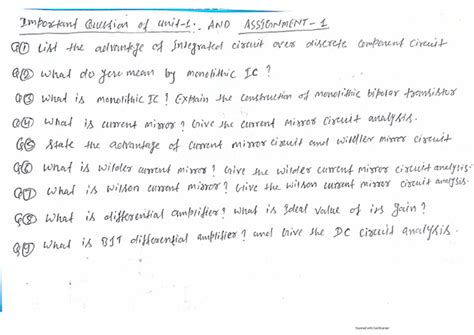 Important Question of unit-1. AND ASSIGNMENT-1
Q(1) List the advantage of Integrated circuit over discrete component circuit
Q(2) What do you mean by monolithic IC?
Q(3) What is monolithic IC? Explain the construction of monolithic bipolar transistor
Q(4) What is current mirror? Give the current mirror circuit analysis.
Q(5) State the advantage of current mirror circuit and widller mirror circuit
Q(6) What is wilder current mirror? Give the wilder current mirror circuit analysis.
Q(7) What is wilson current mirror? Give the wilson current mirror circuit analysis.
Q(8) What is differential amplifier? What is Ideal value of its gain?
Q(9) What is BJT differential amplifier? and Give the DC circuit analysis.
Scanned with CamScanner